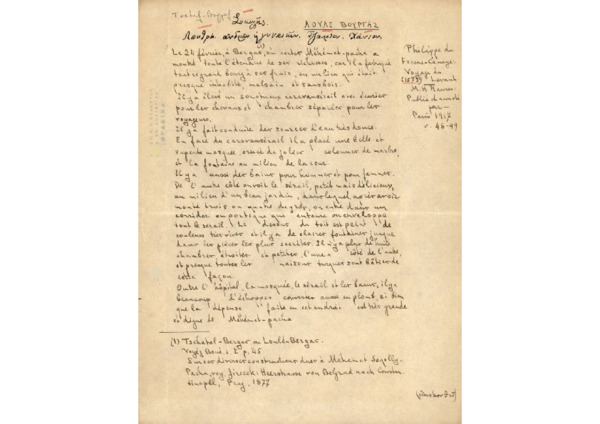 Tschatal-Bergas
ΛΟΥΛΕ ΒΟΥΡΓΑΣ
Λουτρά ανδρών ή γυναικών. Τζαμίον. Χάνιον.
Le 24 février, à Bergas, où certes Méhémet-pacha a
montré toute l'étendue de ses richesses, car il a fabriqué
tout ce grand bourg à ses frais, en un lieu qui était
presque inhabité, malsain et sans bois.
Il y a élevé un somptueux carravansérail avec
pour les chevaux et chambres séparées pour les
voyageurs.
Il y a fait conduire des sources d'eau très bonne.
En face du carravansérail il a placé une belle et
superbe mosquée, ornée de jolies colonnes de marbre,
et la fontaine au milieu de la cour.
Il y a aussi des bains pour hommes et pour femmes.
De l'autre côté on voit le sérail, petit mais délicieux,
au milieu d'un beau jardin, dans lequel, après avoir
monté trois ou quatre degrés, on entre dans un
corridor ou portique qui entoure ou enveloppe
tout le sérail. Le dessous du toit est peint de
couleurs très vives et il y a de claires fontaines jusque
dans les pièces les plus secrètes. Il n'y a plus que
chambres étroites et petites, l'une à côté de l'autre,
et presque toutes les maisons turques sont bâties de
cette façon.
Outre l'hôpital, la mosquée, le sérail et les bains, il y a
beaucoup d'échoppes couvertes aussi en plomb, si bien
que la dépense faite en cet endroit est très grande
et digne de Méhémet-pacha
Philippe du
Fresne-Canaye.
Voyage du
Levant
(1573)
M. H. Hauser.
Publié et annoté
par
Paris 1897
σ. 46-49
(1) Tschatal-Bergas ou Loulé-Bergas.
p. 45
Sur ces diverses constructions dues à Mehemet Sogolly-
Pacha, voy. Jirecek: Heerstrasse von Belgrad nach Constan.
Prag, 1877